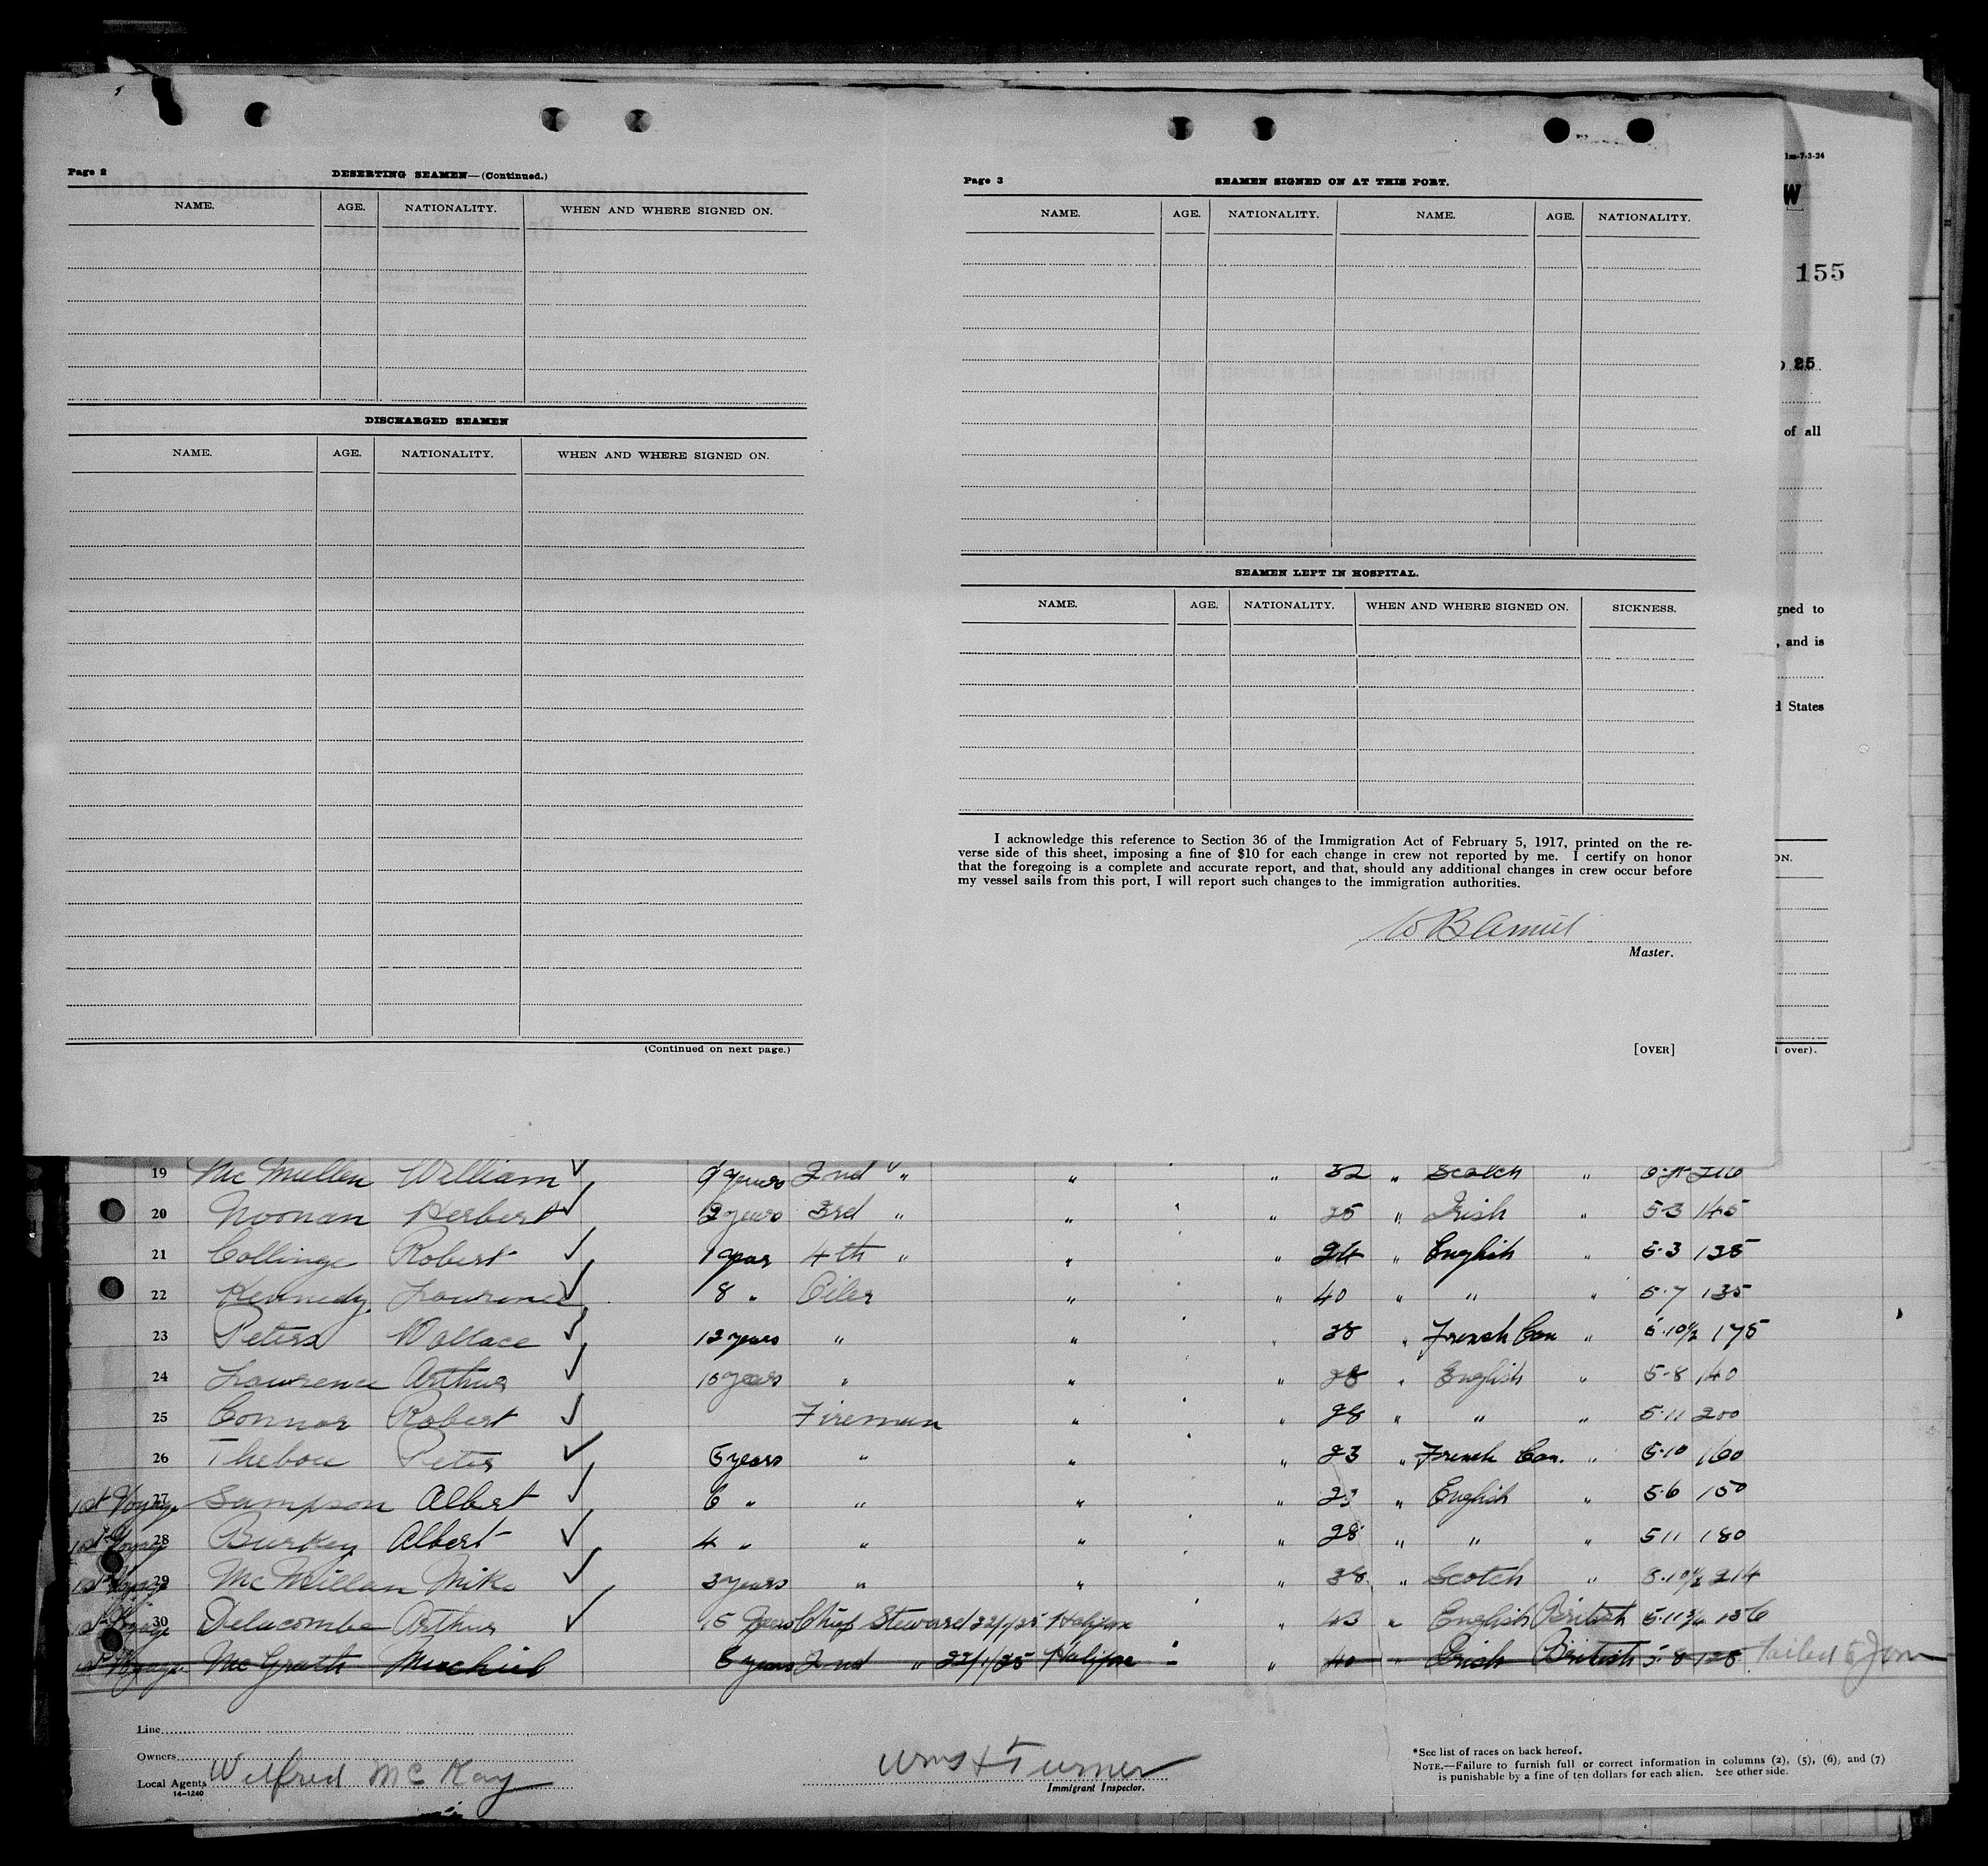 Page 2
DESERTING SEAMEN—(Continued.)
NAME. AGE. NATIONALITY. WHEN AND WHERE SIGNED ON.
DISCHARGED SEAMEN
NAME. AGE. NATIONALITY. WHEN AND WHERE SIGNED ON.
(Continued on next page.)
Page 3
SEAMEN SIGNED ON AT THIS PORT.
NAME. AGE. NATIONALITY. NAME. AGE. NATIONALITY.
SEAMEN LEFT IN HOSPITAL.
NAME. AGE. NATIONALITY. WHEN AND WHERE SIGNED ON. SICKNESS.
I acknowledge this reference to Section 36 of the Immigration Act of February 5, 1917, printed on the re-
verse side of this sheet, imposing a fine of $10 for each change in crew not reported by me. I certify on honor
that the foregoing is a complete and accurate report, and that, should any additional changes in crew occur before
my vessel sails from this port, I will report such changes to the immigration authorities.
W B
Master.
[OVER]
-7-3-24
W
155
25
of all
gned to
, and is
d States
ON.
over).
19 Mc Mullen William ✓ 9 years 2nd " " " 32 " Scotch " 216
20 Noonan Herbert ✓ years 3rd " " " 25 " Irish " 5-3 145
21 Collinge Robert ✓ 1 year 4th " " " 24 " English " 5-3 135
22 Kennedy Lawrence ✓ 8 " Oiler " " 40 " " " 5-7 135
23 Peters Wallace ✓ 12 years " " " 38 " French Can " 5-10½ 175
24 Lawrence Arthur ✓ 10 years " " " 28 " English " 5-8 140
25 Connor Robert ✓ Fireman " " 28 " " " 5-11 200
26 Thebou Peter ✓ 5 years " " " 23 " French Can. " 5-10 160
1st Voyage 27 Sampson Albert ✓ 6 " " " " 23 " English " 5-6 150
1st Voyage 28 Burkey Albert ✓ 4 " " " " 28 " " " 5 11 180
1st Voyage 29 Mc Millan Mike ✓ 3 years " " " 38 " Scotch " 5-10½ 214
1st Voyage 30 Delacombe Arthur ✓ 15 years Chief Steward 22/1/25 Halifax 43 " English British 5-11¾ 156
1st Voyage Mc Grath 6 years 2nd " 22/1/25 Halifax " 40 " Irish British 5-8 128 Failed to Join
Line
Owners
Local Agents Wilfred Mc Kay
14-1240
Wm H Turner
Immigrant Inspector.
*See list of races on back hereof.
NOTE.—Failure to furnish full or correct information in columns (2), (5), (6), and (7)
is punishable by a fine of ten dollars for each alien. See other side.